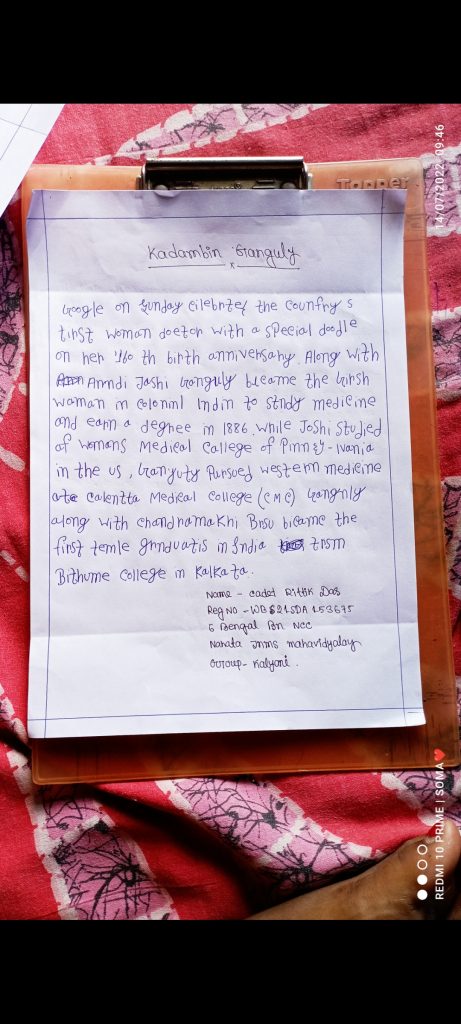 Topper
14/07/2022 09:46
Kadambin Ganguly
x
Google on Sunday Cilebrtes the country s
tirst woman doctor with a special doodle
on her 160 th birth anniversary. Along with
Anndi Joshi Ganguly became the Girsh
woman in coloninl Indin to stndy medicine
and earn a degree in 1886. While Joshi studied
of womans Medical Callege of Pinnsy-lvania
in the us, Ganguty Pursued western medicine
at calentta Medical college (CMC) Gangnly
along with chandramakhi Bnsu bicame the
first temle grnduatis in India trsm
Bithume College in Kalkata.
Name - cadet Ritik Das
Reg No - WB21SDA153675
5 Bengal Bn NCC
Nahata JNMS mahavidyalay
Group - Kalyani.
REDMI 10 PRIME | SOMA❤